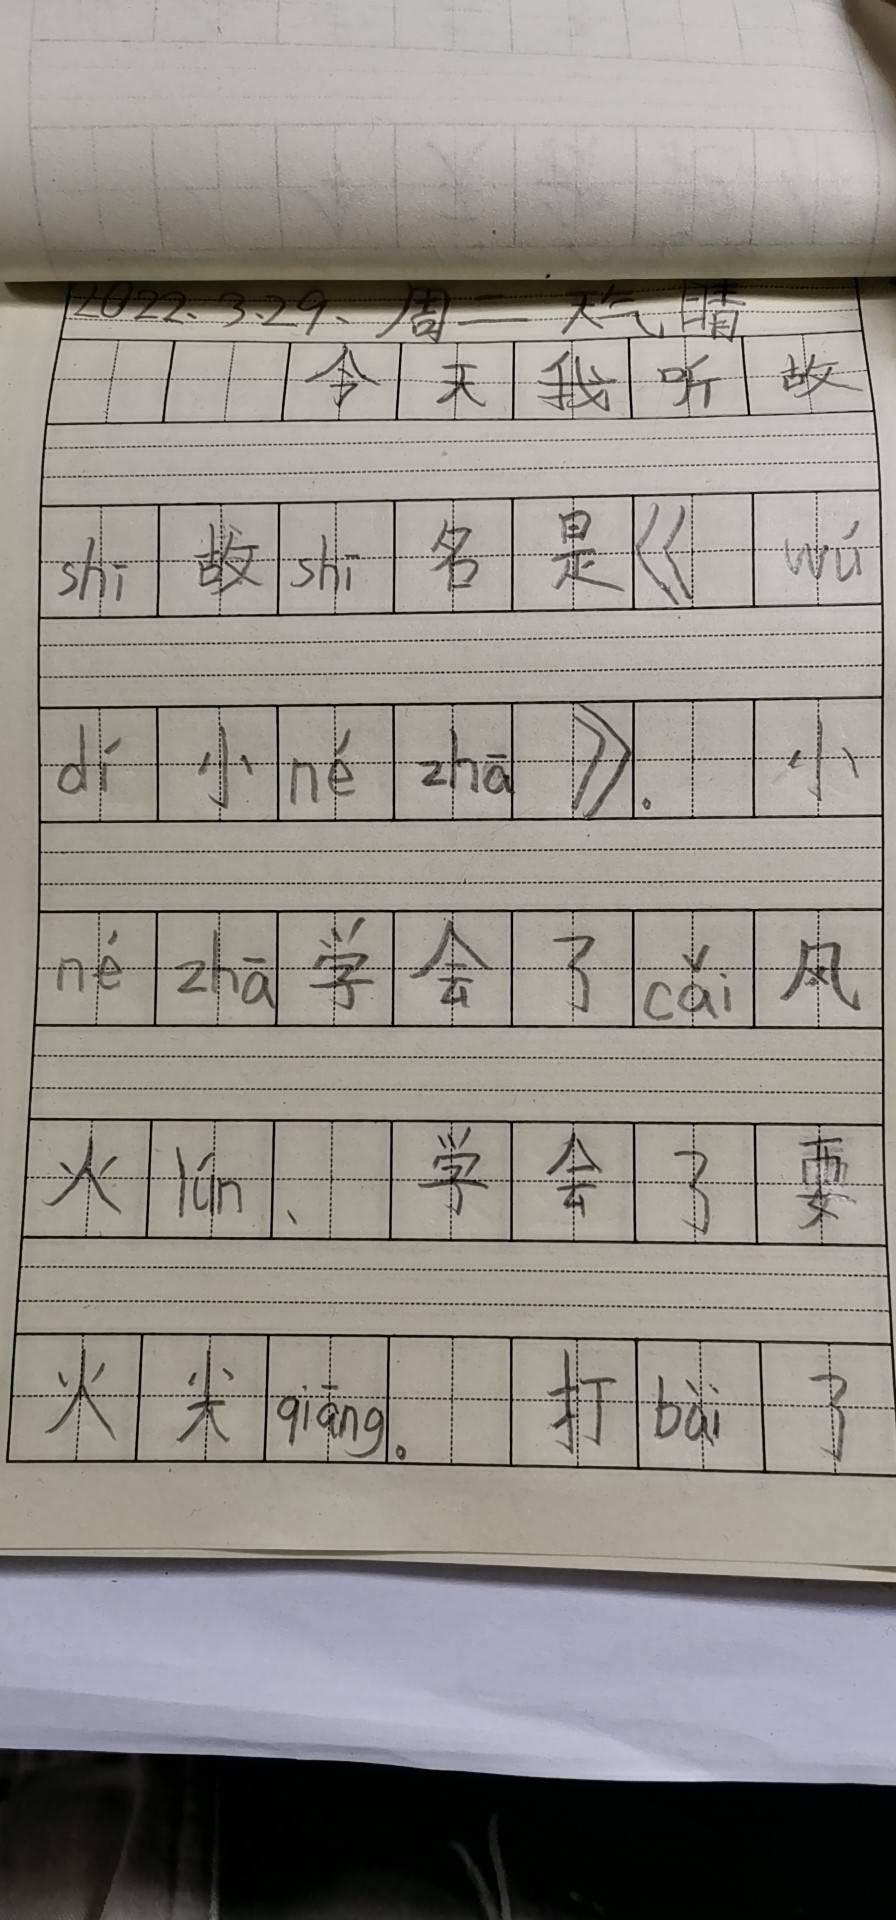 2022.3.29、周二 天气晴
今天我听故
shī故shī名是《wú
dí小né zhā》。小
né zhā学会了cǎi风
火lún、学会了耍
火尖qiāng。打bài了